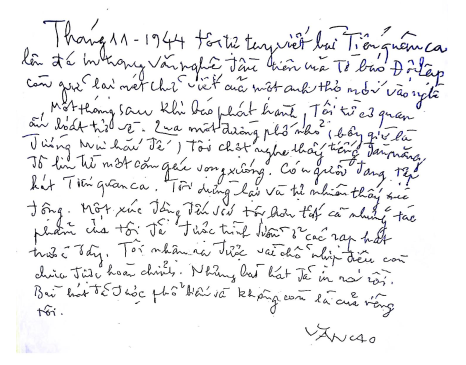 Tháng 11-1944 tôi tự tay viết bài Tiến quân ca
lên đá in trong văn nghệ đầu tiên của tờ báo Độc lập
còn giữ lại nét chữ viết của một anh thợ mới vào nghề
Một tháng sau khi báo phát hành, Tôi từ cơ quan
ấn loát trở về. Qua một đường phố nhỏ (bây giờ là
đường Mai hắc đế) tôi chợt nghe thấy tiếng đàn măng
đô lin từ một căn gác vọng xuống. Có người đang tập
hát Tiến quân ca. Tôi dừng lại và tự nhiên thấy xúc
động. Một xúc động đến với tôi hơn tất cả những tác
phẩm của tôi đã được trình diễn ở các rạp hát
trước đây. Tôi nhận ra được vài chỗ nhịp điệu còn
chưa được hoàn chỉnh. Nhưng bài hát đã in ra rồi.
Bài hát đã được phổ biến và không còn là của riêng
tôi.
VĂN CAO